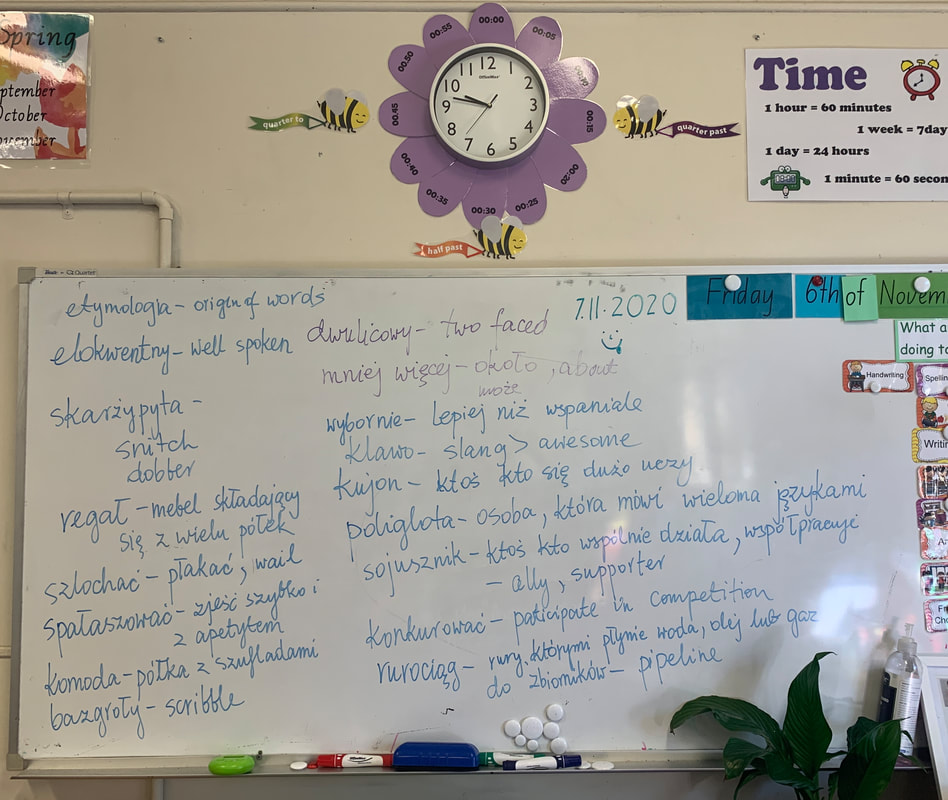 Spring
ptember
October
November
00:00
00:05
00:10
00:15
00:20
00:25
00:30
00:35
00:40
00:45
00:50
00:55
12
1
2
3
4
5
6
7
8
9
10
11
OfficeMax
quarter to
quarter past
half past
Time
1 hour = 60 minutes
1 week = 7day
1 day = 24 hours
1 minute = 60 secon
Quartet
Friday
6th
of
Novem
What a
doing to
Handwriting
Spellin
Writin
7.11.2020
etymologia - origin of words
elokwentny - well spoken
skarżypyta -
snitch
dobber
regał - mebel składający
się z wielu półek
szlochać - płakać, wail
spałaszować - zjeść szybko i
z apetytem
komoda - półka z szufladami
bazgroły - scribble
dwulicowy - two faced
mniej więcej - około, about
może
wybornie - lepiej niż wspaniale
klawo - slang > awesome
kujon - ktoś kto się dużo uczy
poliglota - osoba, która mówi wieloma językami
sojusznik - ktoś kto wspólnie działa, współpracuje
- ally, supporter
konkurować - paticipate in competition
rurociąg - rury, którymi płynie woda, olej lub gaz
do zbiorników - pipeline